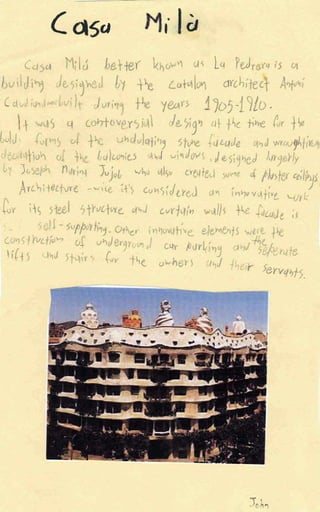 Casa Milà
Casa Milà better known as La Pedrera is a
building designed by the catalan architect Antoni
Gaudí and built during the years 1905-1910.
It was a controversial design at the time for the
bold forms of the undulating stone facade and wrought iron
decoration of the balconies and windows, designed largely
by Joseph Maria Jujol who also created some of plaster ceilings
Architecture-wise it's considered an innovative work
for its steel structure and curtain walls the facade is
self-supporting. Other innovative elements were the
construction of underground car parking and the seperate
lifts and stairs for the owners and their servants.
John